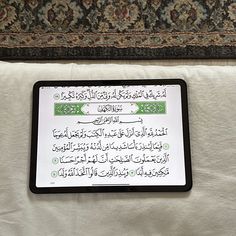 لَّهُۥ شَرِيكٌ فِى ٱلْمُلْكِ وَلَمْ يَكُن لَّهُۥ وَلِىٌّ مِّنَ ٱلذُّلِّ وَكَبِّرْهُ تَكْبِيرًۢا
سُورَةُ الكَهْفِ
بِسْمِ ٱللَّهِ ٱلرَّحْمَٰنِ ٱلرَّحِيمِ
ٱلْحَمْدُ لِلَّهِ ٱلَّذِىٓ أَنزَلَ عَلَىٰ عَبْدِهِ ٱلْكِتَٰبَ وَلَمْ يَجْعَل لَّهُۥ عِوَجَاۜ
قَيِّمًا لِّيُنذِرَ بَأْسًا شَدِيدًا مِّن لَّدُنْهُ وَيُبَشِّرَ ٱلْمُؤْمِنِينَ
ٱلَّذِينَ يَعْمَلُونَ ٱلصَّٰلِحَٰتِ أَنَّ لَهُمْ أَجْرًا حَسَنًا
مَّٰكِثِينَ فِيهِ أَبَدًا وَيُنذِرَ ٱلَّذِينَ قَالُوا۟ ٱتَّخَذَ ٱللَّهُ وَلَدًا